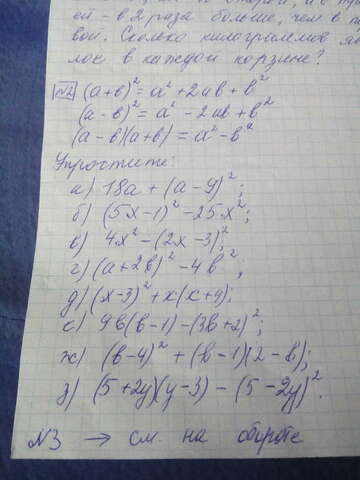 ей - в 2 раза больше, чем в п
вой. Сколько килограммов яб
лок в каждой корзине?
№2 (a+b)² = a² + 2ab + b²
(a-b)² = a² - 2ab + b²
(a-b)(a+b) = a² - b²
Упростите:
а) 18a + (a-9)²;
б) (5x-1)² - 25x²;
в) 4x² - (2x-3)²;
г) (a+2b)² - 4b²;
д) (x-3)² + x(x+9);
е) 9b(b-1) - (3b+2)²;
ж) (b-4)² + (b-1)(2-b);
з) (5+2y)(y-3) - (5-2y)².
№3 → см. на обороте